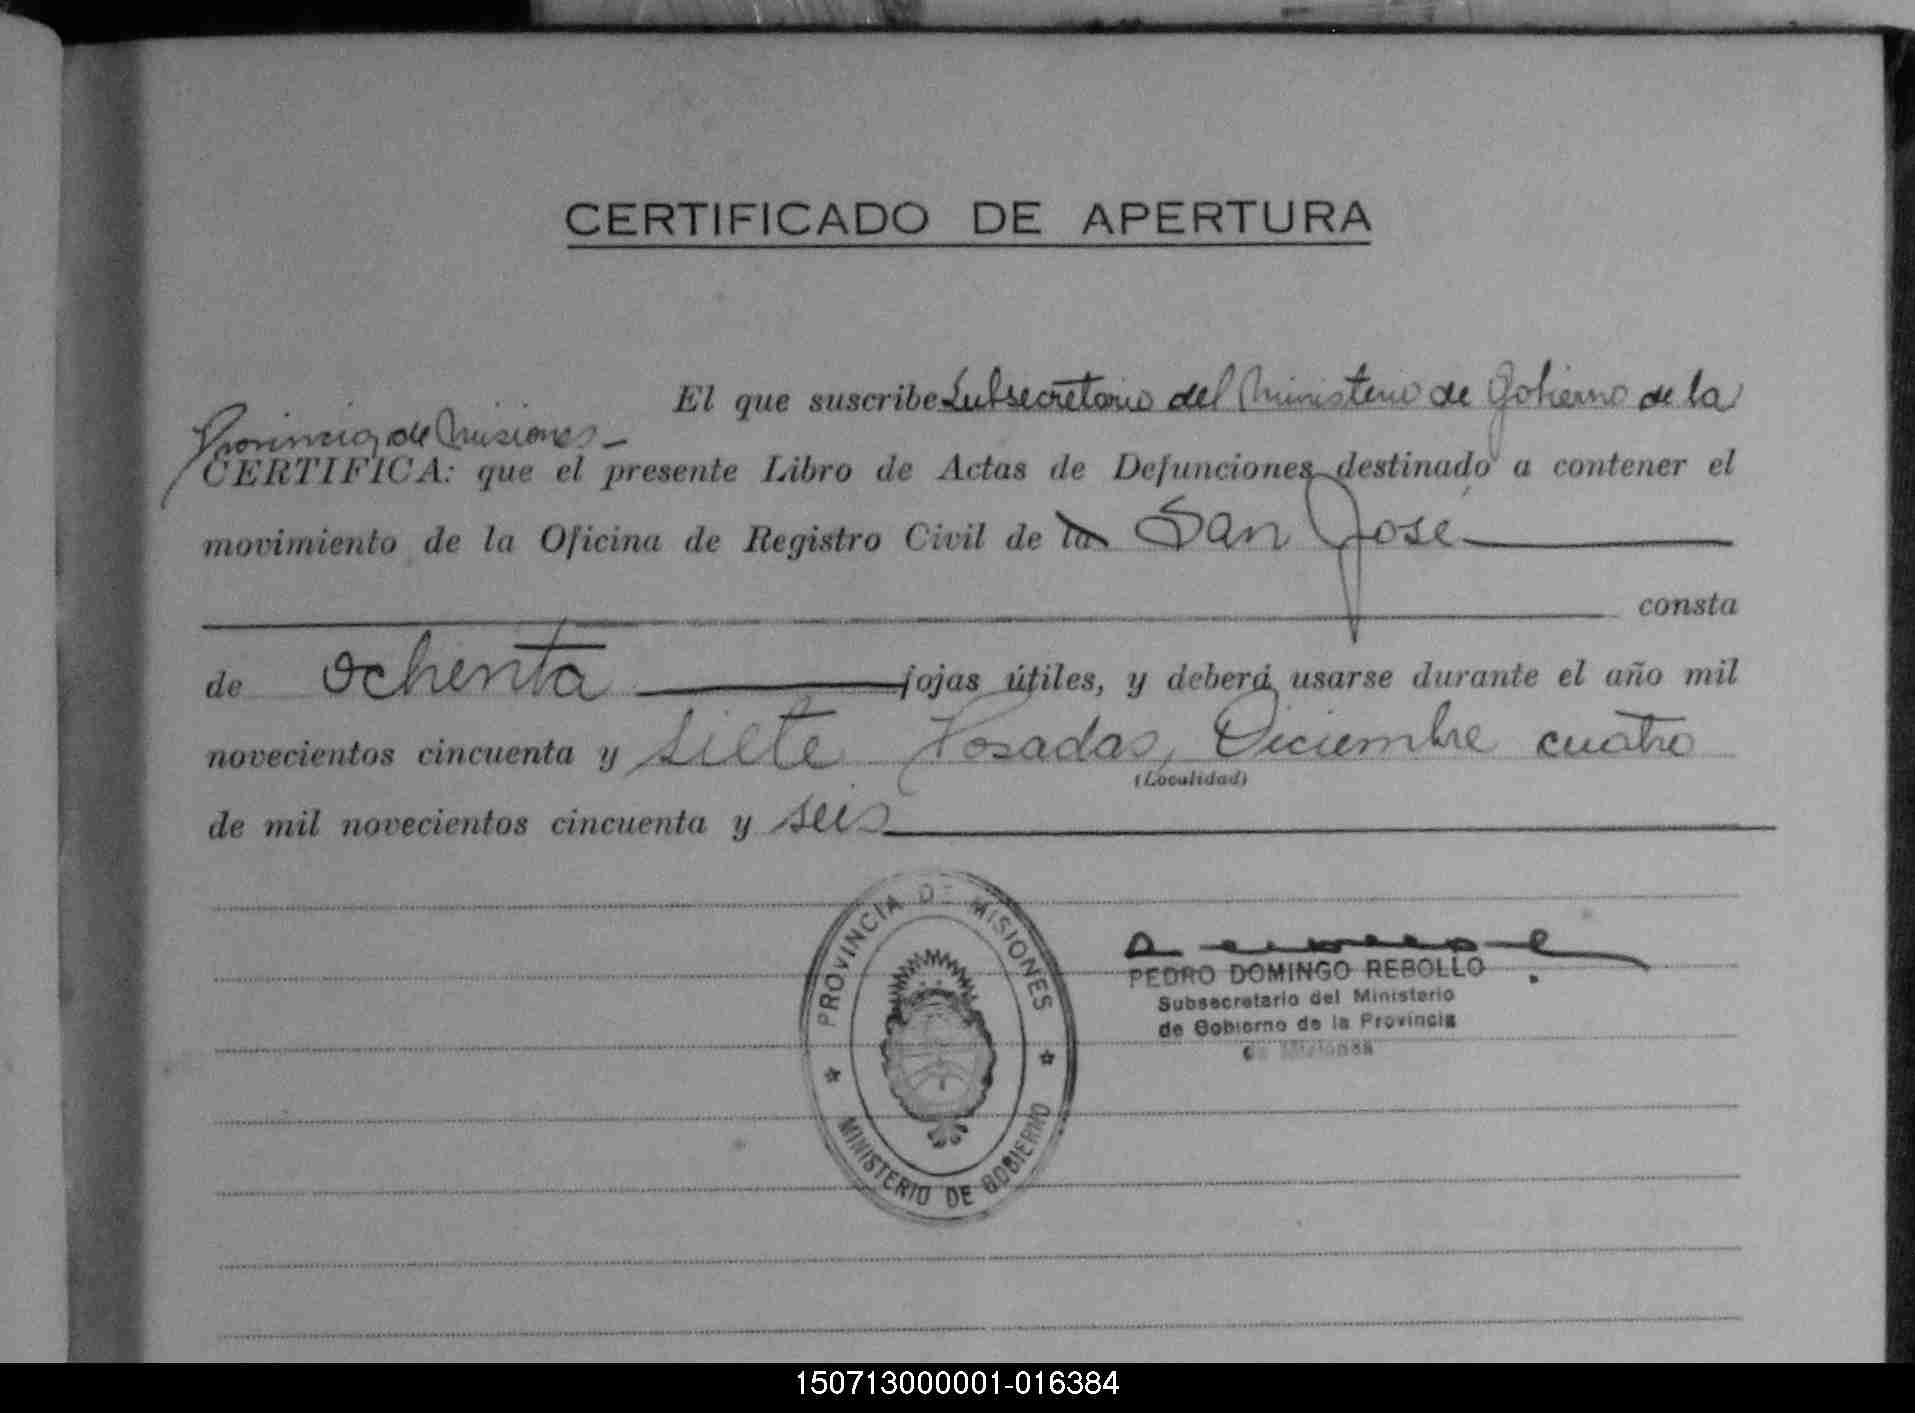 CERTIFICADO DE APERTURA
El que suscribe Subsecretario del Ministerio de Gobierno de la
Provincia de Misiones
CERTIFICA: que el presente Libro de Actas de Defunciones destinado a contener el
movimiento de la Oficina de Registro Civil de la San José
consta
de ochenta fojas útiles, y deberá usarse durante el año mil
novecientos cincuenta y siete Posadas, Diciembre cuatro
(Localidad)
de mil novecientos cincuenta y seis
PROVINCIA DE MISIONES
MINISTERIO DE GOBIERNO
PEDRO DOMINGO REBOLLO
Subsecretario del Ministerio
de Gobierno de la Provincia
de Misiones
150713000001-016384